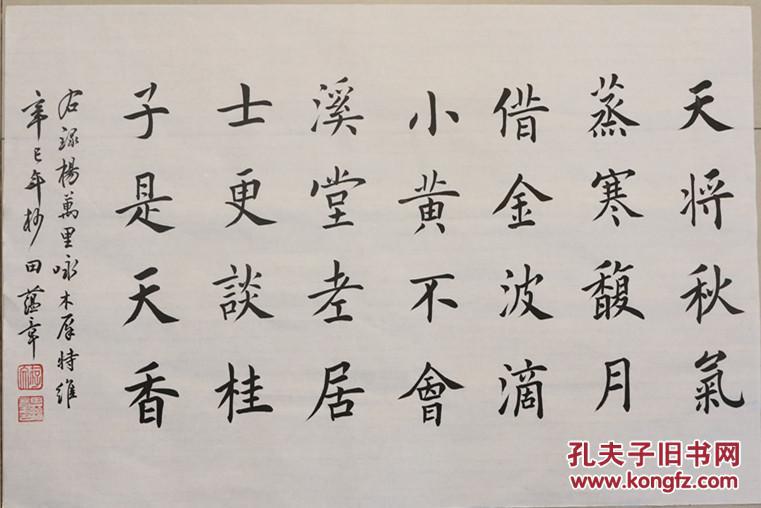 天将秋氣
蒸寒馥月
借金波滴
小黄不會
溪堂老居
士更談桂
子是天香
右録楊萬里咏木犀特維
辛巳年杪田蕴章
孔夫子旧书网
www.kongfz.com